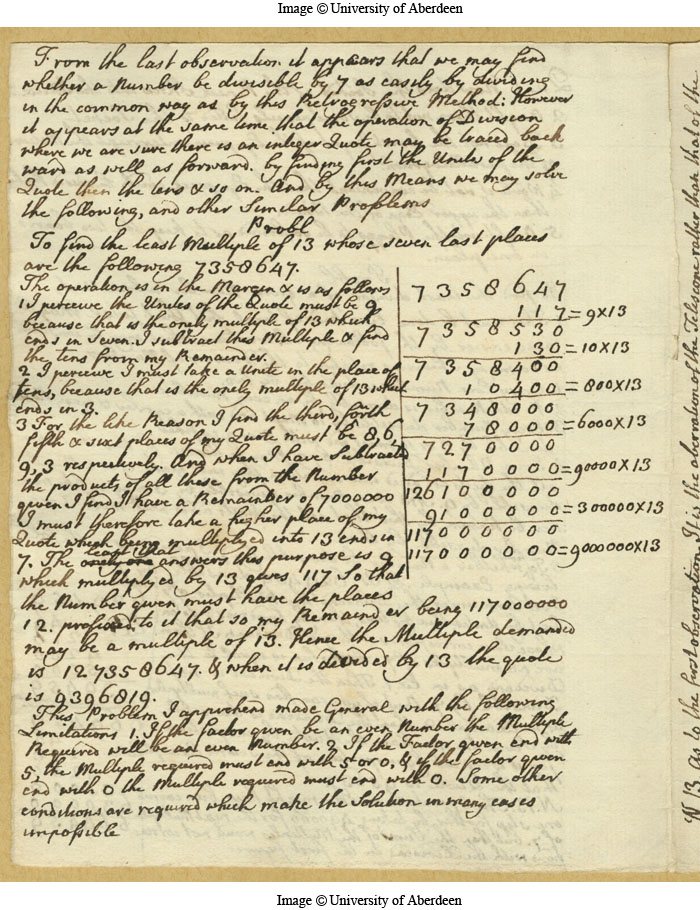 Image © University of Aberdeen
From the last observation it appears that we may find
whether a Number be divisible by 7 as easily by dividing
in the common way as by this Retrogressive Method: However
it appears at the same time that the operation of Division
where we are sure there is an integer Quote may be traced back
ward as well as forward. by finding first the Units of the
Quote then the tens & so on. And by this Means we may solve
the following, and other Similar Problems
Probl
To find the least Multiple of 13 whose seven last places
are the following 7358647.
The operation is in the Margin & is as follows
1 I perceive the Unites of the Quote must be 9
because that is the onely multiple of 13 which
ends in Seven. I subtract this Multiple & find
the tens from my Remainder.
2 I perceive I must take a Unite in the place of
tens, because that is the onely multiple of 13 which
ends in 3.
3 For the like Reason I find the third, forth
fifth & sixt places of my Quote must be 8, 6,
9, 3 respectively. And when I have Subtracted
the products of all these from the Number
given I find I have a Remainder of 7000000
I must therefore take a higher place of my
Quote which being multiplyed into 13 ends in
7. The least that answers this purpose is 9
which multiplyed by 13 gives 117 So that
the Number given must have the places
12. prefixed to it that so my Remainder being 117000000
may be a multiple of 13. Hence the Multiple demanded
is 127358647. & when it is divided by 13 the quote
is 9396819.
This Problem I apprehend made General with the following
Limitations 1. If the factor given be an even Number the Multiple
Required will be an even Number. 2 If the Factor given end with
5, the Multiple required must end with 5 or 0, & if the factor given
end with 0 the Multiple required must end with 0. Some other
conditions are required which make the Solution in many cases
impossible
7358647
117 = 9x13
7358530
130 = 10x13
7358400
10400 = 800x13
7348000
78000 = 6000x13
7270000
1170000 = 90000x13
126100000
9100000 = 300000x13
117000000
117000000 = 9000000x13
NB as to the first observation. It is the aberration of the Telescope rather than that of the
Image © University of Aberdeen